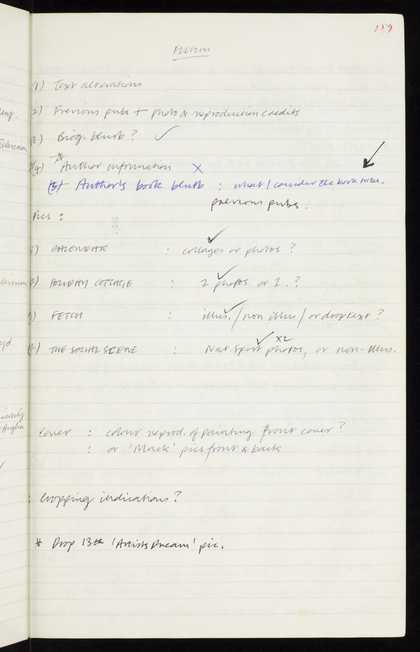 159
1) Text alterations
2) Previous pubs + photo & reproduction credits
3) Biog. blurb? ✓
4) Author information X
(5) Author's book blurb : what I consider the book to be.
previous pubs.
Pics :
: collages or photos ?
: 2 photos or 1. ?
3) FETCH : illus. / non illus / or drop text ?
4) THE SOCIAL SCENE : Nat. Sport photos, or non-illus.
x2
Cover : colour reprod. of painting front cover ?
: or 'Mock' pics front & back
: Cropping indications ?
* Drop 13th 'Artists Dream' pic.